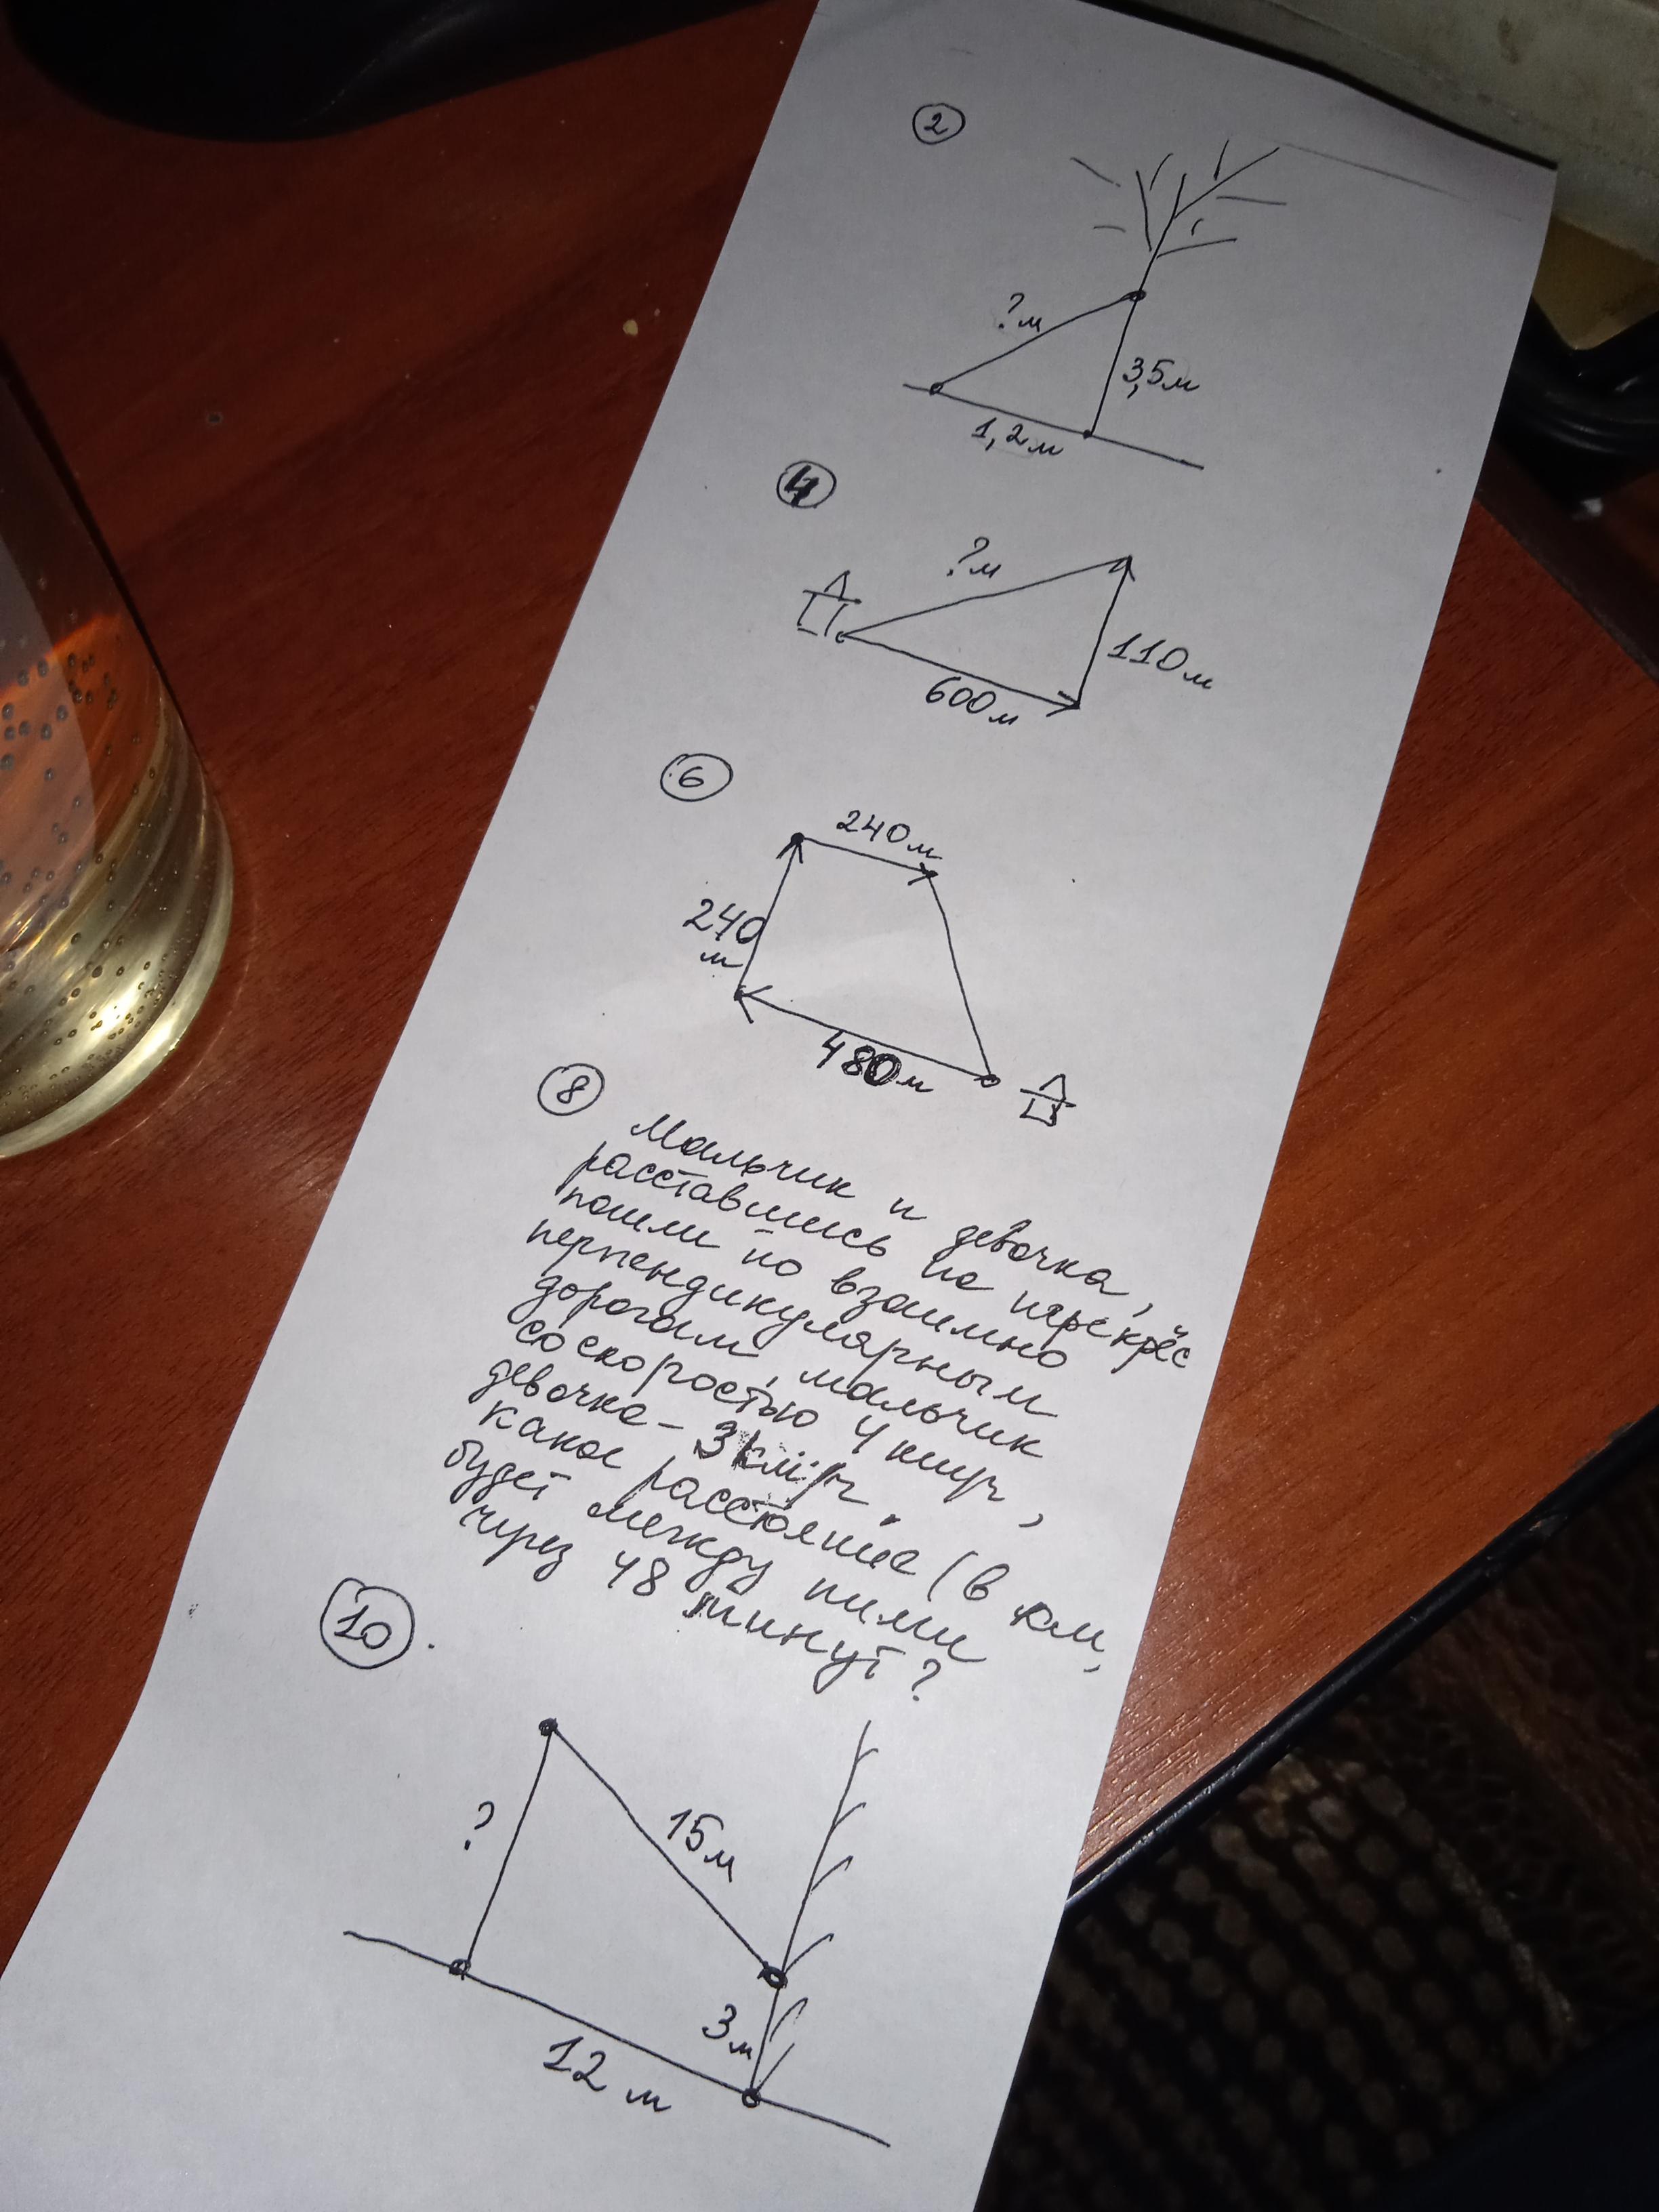 2
?м
3,5м
1,2м
4
?м
110м
600м
6
240м
240
м
480м
8
Мальчик и девочка,
расставшись на перекрёс
пошли по взаимно
перпендикулярным
дорогам, мальчик
со скоростью 4 км/ч,
девочка - 3 км/ч.
какое расстояние (в км,
будет между ними
через 48 минут?
10.
?
15м
3м
12 м